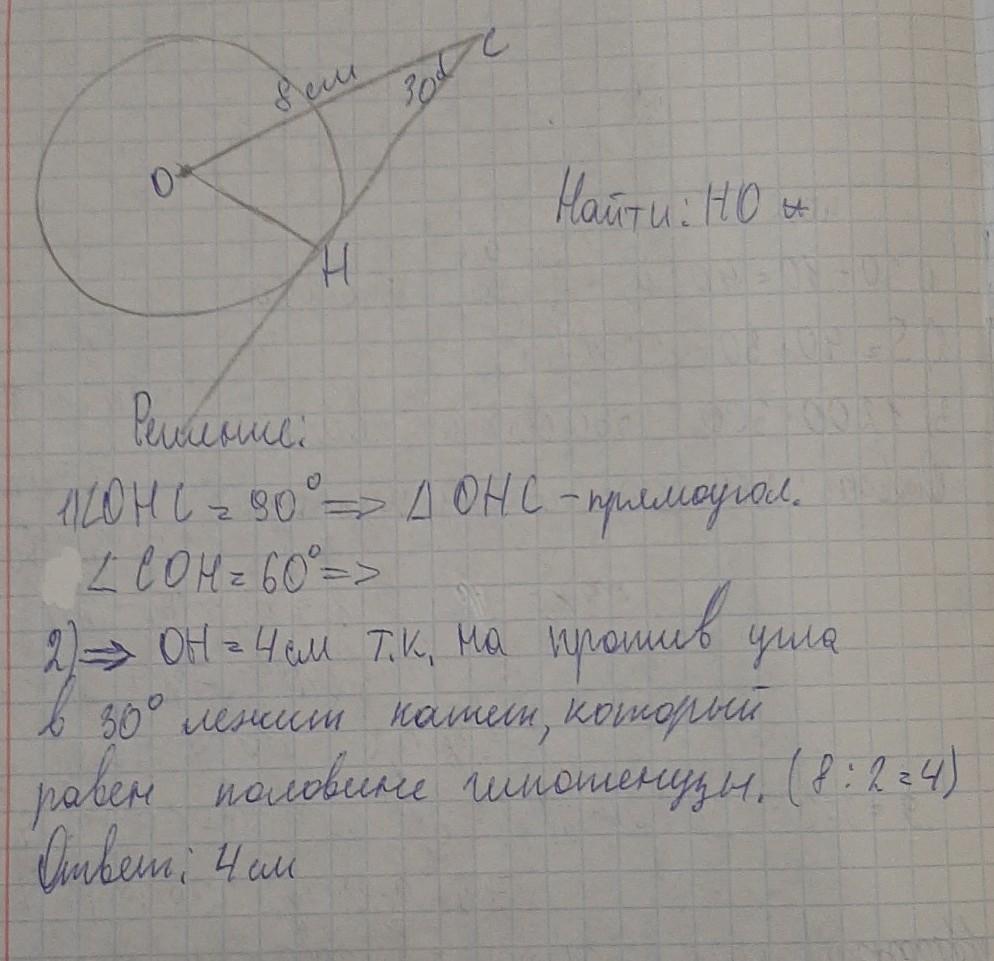 C
8 см
30°
O
H
Найти: HO
Решение:
1) ∠OHC = 90° => Δ OHC - прямоугол.
∠COH = 60° =>
2) => OH = 4 см т.к. на против угла
в 30° лежит катет, который
равен половине гипотенузы. (8 : 2 = 4)
Ответ: 4 см